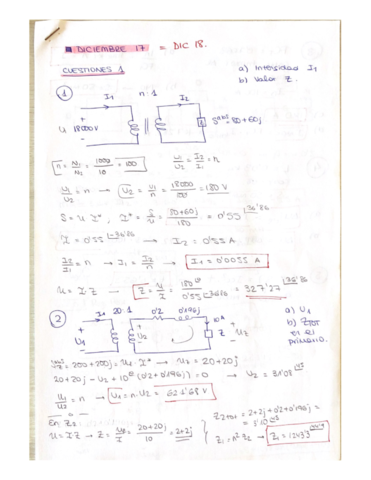 DICIEMBRE 17 = DIC 18.
CUESTIONES 1
a) Intensidad I1
b) Valor Z.
1
I1 n:1 I2
U 18000V
S = 80+60j
n = N1/N2 = 1000/10 = 100
U1/U2 = I2/I1 = n
U1/U2 = n → U2 = U1/n = 18000/100 = 180 V
S = U·I*, I* = S/U = 80+60j/180 = 0'55 |36'86
I = 0'55 |-36'86 → I2 = 0'55 A
I2/I1 = n → I1 = I2/n → I1 = 0'0055 A
U = I·Z → Z = U/I = 180/0'55 |-36'86 = 327'27 |36'86
2
I1 20:1 0'2 0'196j 10A
U1 Z U2
a) U1
b) ZTOT en el primario.
= 200+200j = U2·I* → U2 = 20+20j
U1/U2 = n → U1 = n·U2 =
En Z2 =
U = I·Z → Z = U2/I = 20+20j/10 = 2+2j
Z2tot = 2+2j+0'2+0'196j =
Z1 = n²·Z2 →